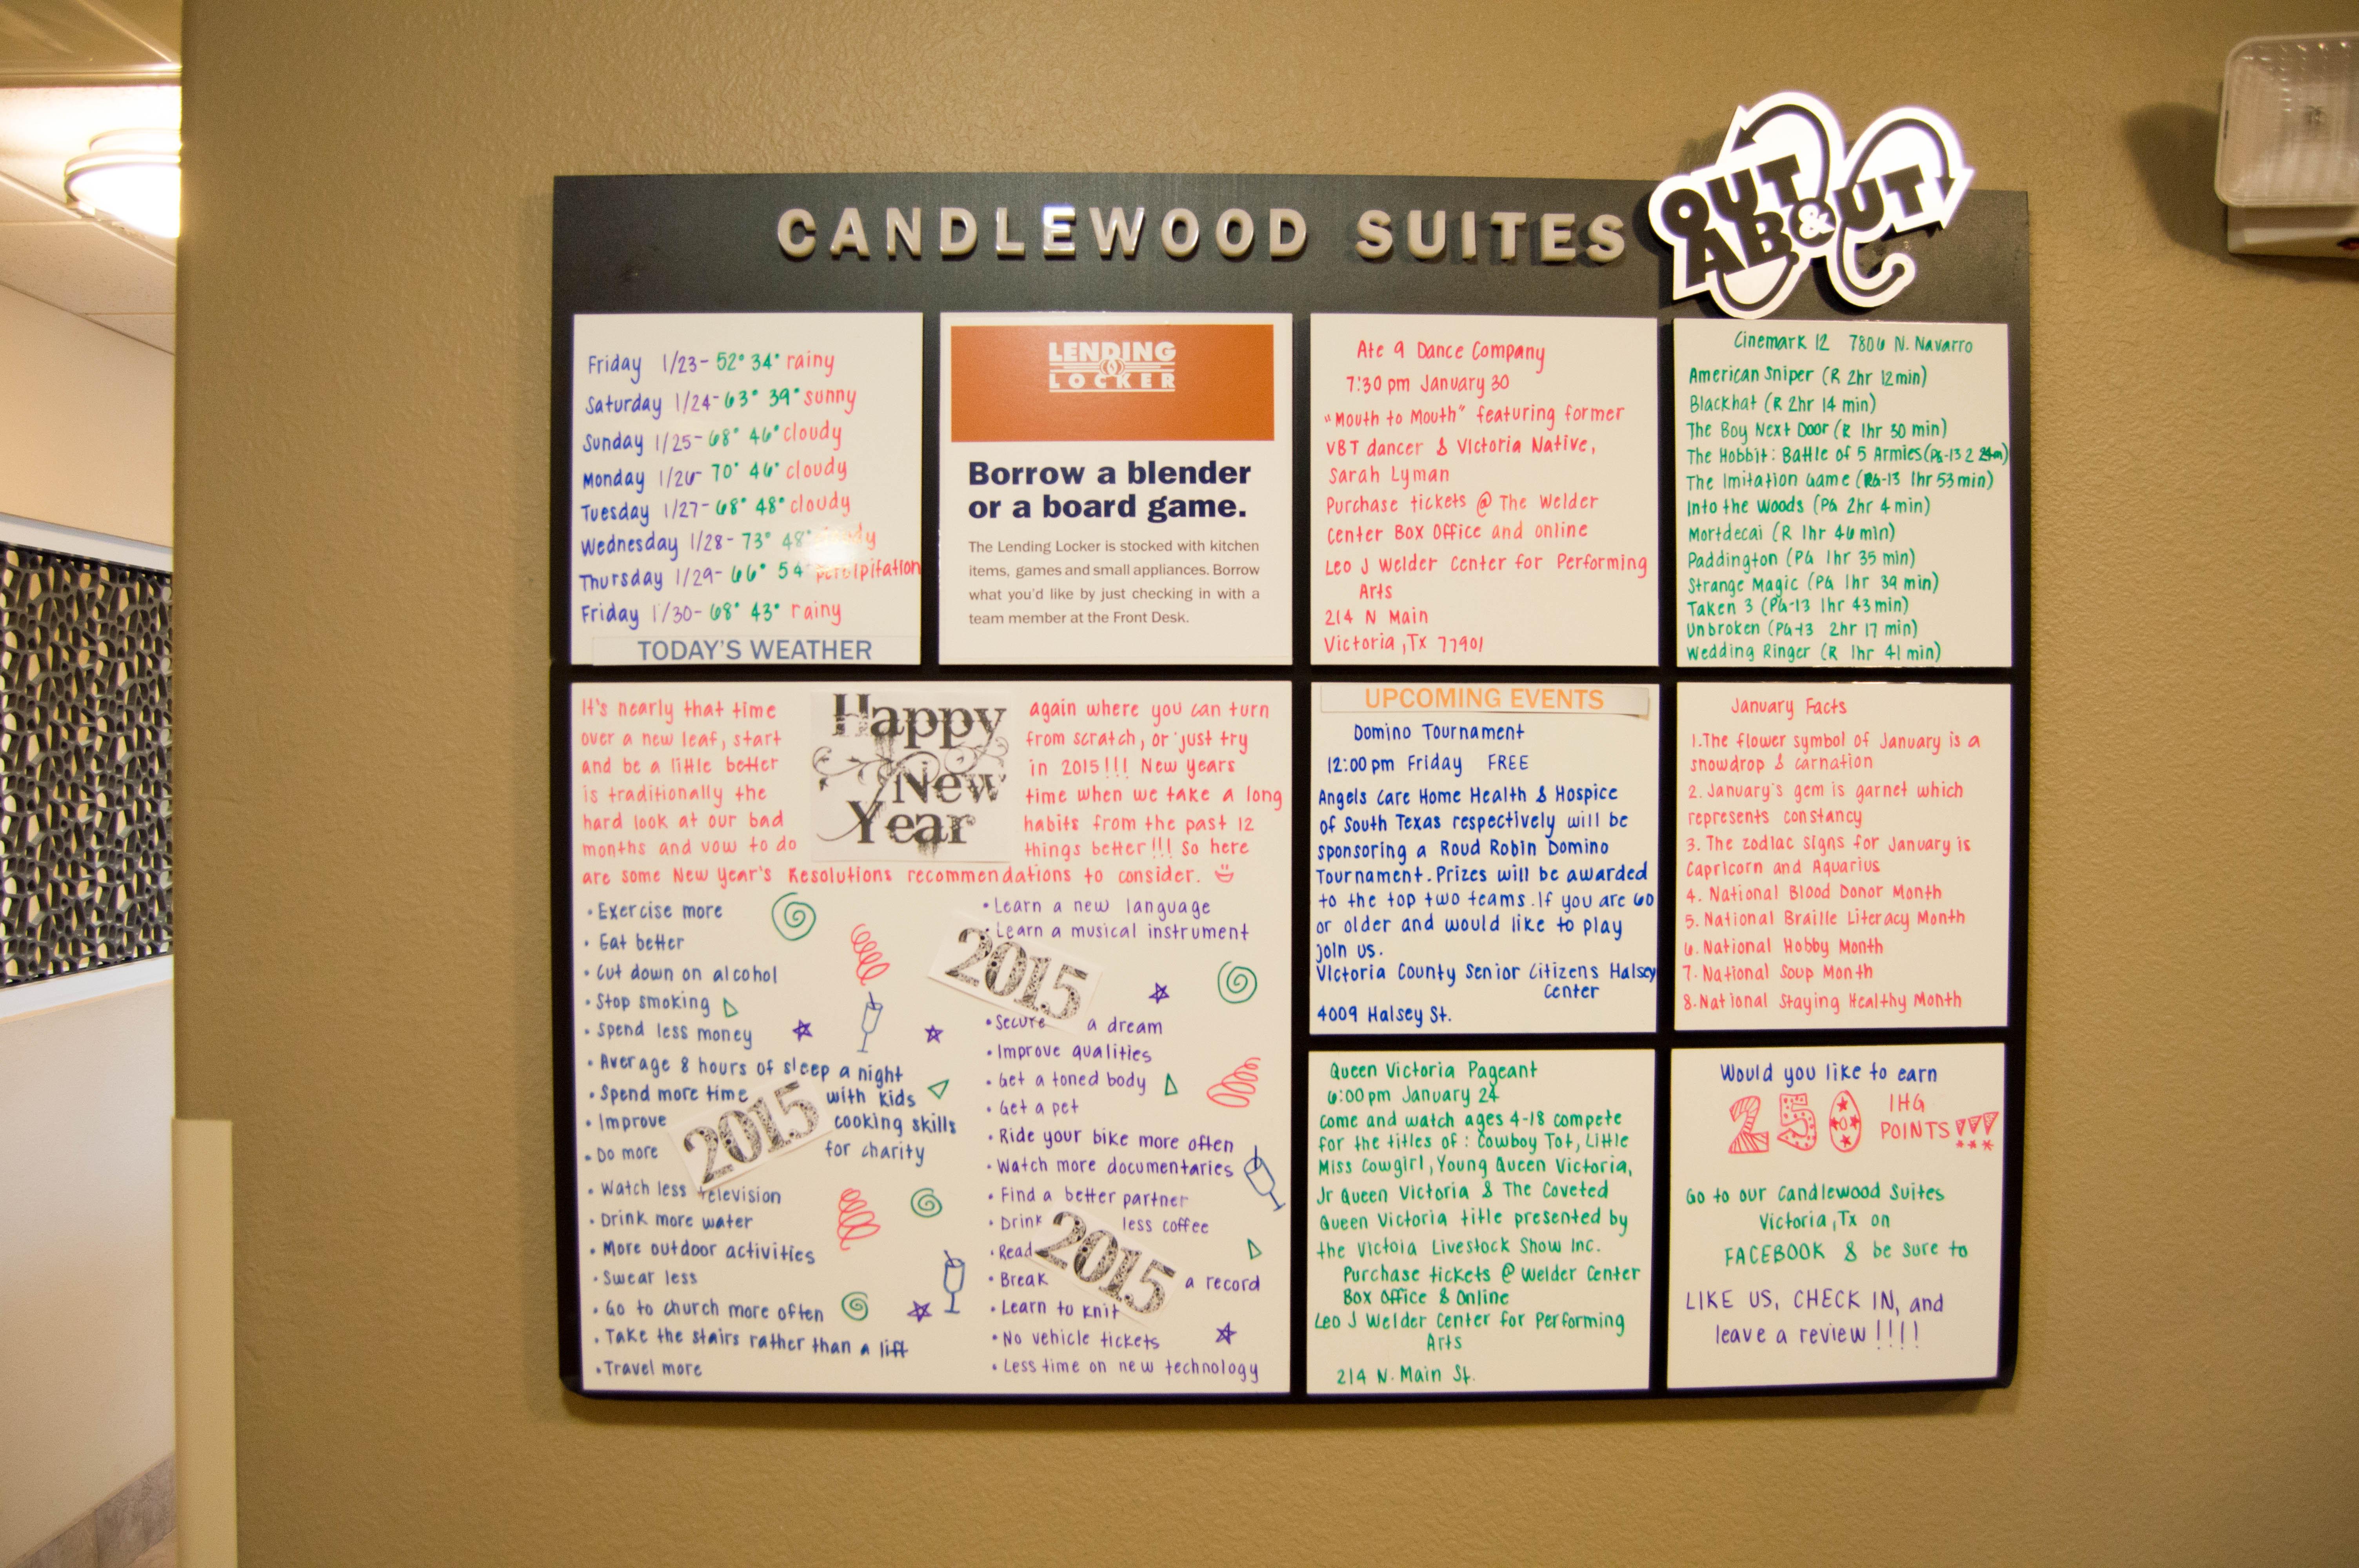 CANDLEWOOD SUITES
OUT & ABOUT
Friday 1/23- 52° 34° rainy
Saturday 1/24- 63° 39° sunny
Sunday 1/25- 68° 46° cloudy
Monday 1/26- 70° 46° cloudy
Tuesday 1/27- 68° 48° cloudy
Wednesday 1/28- 73° 48°
Thursday 1/29- 66° 54°
Friday 1/30- 68° 43° rainy
TODAY'S WEATHER
LENDING
LOCKER
Borrow a blender
or a board game.
The Lending Locker is stocked with kitchen
items, games and small appliances. Borrow
what you'd like by just checking in with a
team member at the Front Desk.
Ate 9 Dance Company
7:30 pm January 30
"Mouth to Mouth" featuring former
VBT dancer & Victoria Native,
Sarah Lyman
Purchase tickets @ The Welder
Center Box Office and online
Leo J Welder Center for Performing
Arts
214 N Main
Victoria, Tx 77901
Cinemark 12 7806 N. Navarro
American Sniper (R 2hr 12min)
Blackhat (R 2hr 14 min)
The Boy Next Door (R 1hr 30 min)
The Hobbit: Battle of 5 Armies (PG-13 2
The Imitation Game (PG-13 1hr 53min)
Into the Woods (PG 2hr 4 min)
Mortdecai (R 1hr 46 min)
Paddington (PG 1hr 35 min)
Strange Magic (PG 1hr 39 min)
Taken 3 (PG-13 1hr 43 min)
Unbroken (PG-13 2hr 17 min)
Wedding Ringer (R 1hr 41 min)
It's nearly that time again where you can turn
over a new leaf, start from scratch, or just try
and be a little better in 2015!!! New years
is traditionally the time when we take a long
hard look at our bad habits from the past 12
months and vow to do things better!!! So here
are some New Year's Resolutions recommendations to consider.
Happy
New
Year
• Exercise more
• Eat better
• Cut down on alcohol
• Stop smoking
• Spend less money
• Average 8 hours of sleep a night
• Spend more time with kids
• Improve cooking skills
• Do more for charity
2015
• Watch less television
• Drink more water
• More outdoor activities
• Swear less
• Go to church more often
• Take the stairs rather than a lift
• Travel more
• Learn a new language
• Learn a musical instrument
2015
• Secure a dream
• Improve qualities
• Get a toned body
• Get a pet
• Ride your bike more often
• Watch more documentaries
• Find a better partner
• Drink less coffee
• Read
2015
• Break a record
• Learn to knit
• No vehicle tickets
• Less time on new technology
UPCOMING EVENTS
Domino Tournament
12:00 pm Friday FREE
Angels Care Home Health & Hospice
of South Texas respectively will be
sponsoring a Roud Robin Domino
Tournament. Prizes will be awarded
to the top two teams. If you are 60
or older and would like to play
join us.
Victoria County Senior Citizens Halsey
Center
4009 Halsey St.
January Facts
1. The flower symbol of January is a
snowdrop & carnation
2. January's gem is garnet which
represents constancy
3. The zodiac signs for January is
Capricorn and Aquarius
4. National Blood Donor Month
5. National Braille Literacy Month
6. National Hobby Month
7. National Soup Month
8. National Staying Healthy Month
Queen Victoria Pageant
6:00 pm January 24
Come and watch ages 4-18 compete
for the titles of: Cowboy Tot, Little
Miss Cowgirl, Young Queen Victoria,
Jr Queen Victoria & The Coveted
Queen Victoria title presented by
the Victoia Livestock Show Inc.
Purchase tickets @ Welder Center
Box Office & Online
Leo J Welder Center for Performing
Arts
214 N. Main St.
Would you like to earn
250 IHG
POINTS!!!
Go to our Candlewood Suites
Victoria, Tx on
FACEBOOK & be sure to
LIKE US, CHECK IN, and
leave a review!!!!